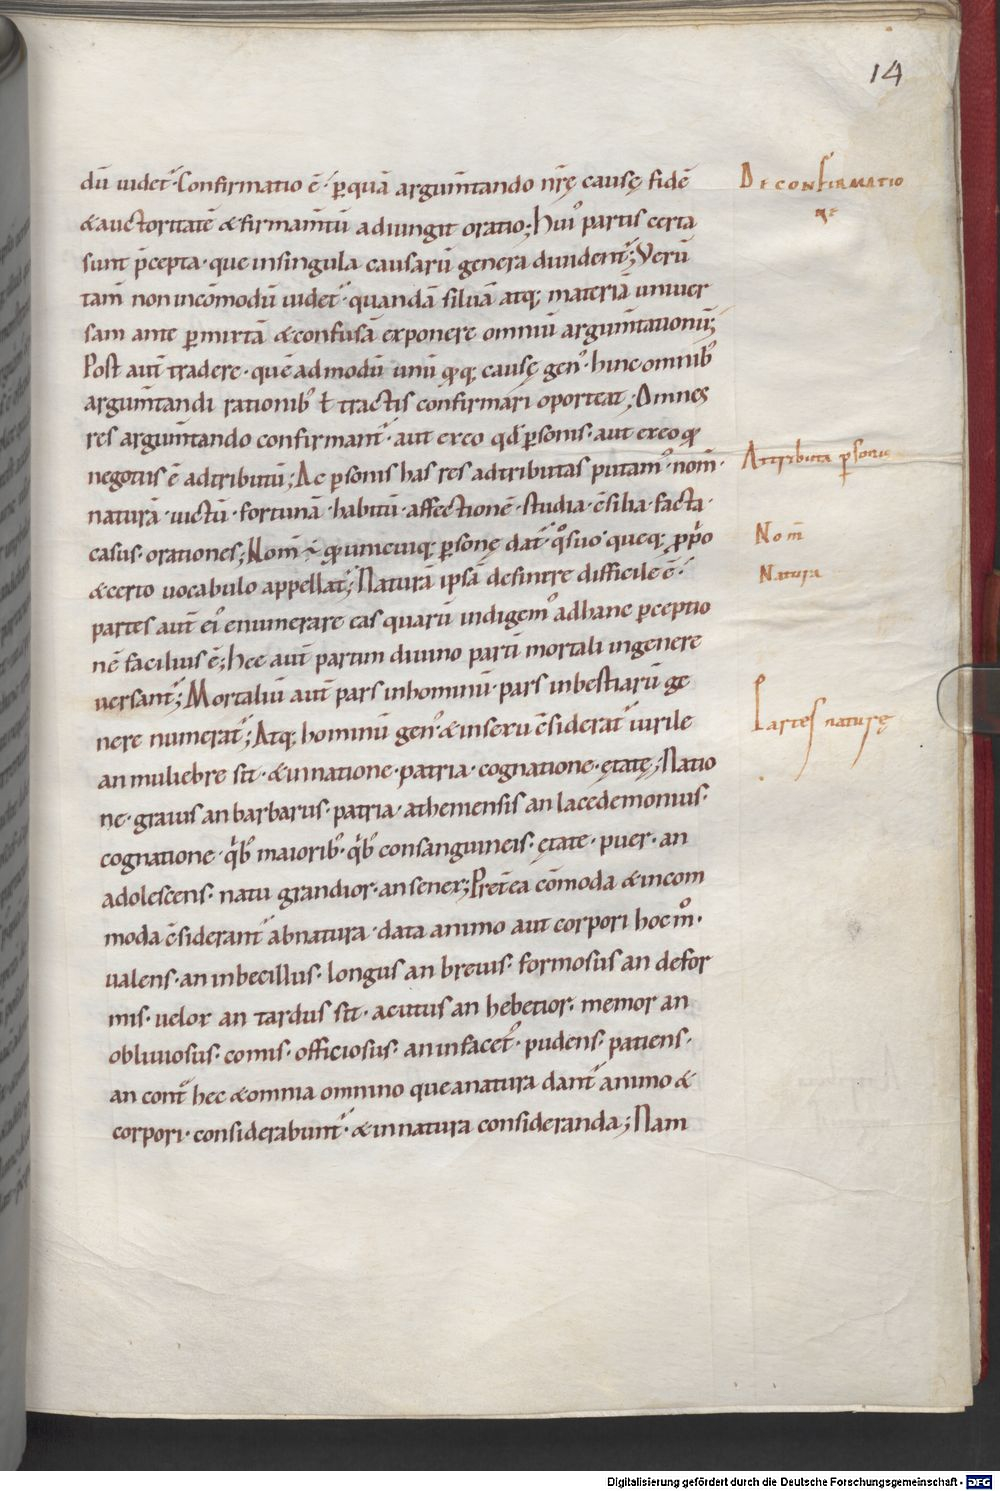 14
dū uidet᷑·Confirmatio ē·ꝑquā argum̄tando nr̄ę causę fidē
De confirmatio
ne
&auctoritatē &firmam̄tū adiungit oratio; hui᷒ partis certa
sunt p̄cepta·que insingula causarū genera diuident᷑; Verū
tam̄ non incōmodū uidet᷑·quandā siluā atq; materiā uniuer
sam ante ꝑmixtā &confusā exponere omniū argum̄tationū;
Post aut̄ tradere·quēadmodū unū q̄q; causę gen᷒·hinc omnib᷒
argum̄tandi rationib᷒ t̄ tractis confirmari oporteat; Omnes
res argum̄tando confirmant᷑·aut ex eo qđ ꝑsonis·aut ex eo qđ
negotiis ē adtributū; Ac ꝑsonis has res adtributas putam᷒·nom̄·
Attributa ꝑsonis
naturā·uictū·fortunā·habitū·affectionē·studia·c̄silia·facta·
casus·orationes; Nom̄ ÷ qđ unicuiq; ꝑsonę dat᷑·qͦ suo queq; ꝓp̄o
Nom̄
&certo uocabulo appellat᷑; Naturā ipsā definire difficile ē·
Natura
partes aut̄ ei᷒ enumerare eas quarū indigem᷒ ad hanc p̄ceptio
nē facilius ē; hec aut̄ partim diuino partī mortali in genere
uersant᷑; Mortaliū aut̄ pars in hominū·pars in bestiarū ge
Partes naturę
nere numerat᷑; Atq; hominū gen᷒ &in sexu c̄siderat᷑ uirile
an muliebre sit·&in natione·patria·cognatione·ętatę; Natio
ne·graius an barbarus·patria·atheniensis an lacedemonius·
cognatione·qͥb᷒ maiorib᷒·qͥb᷒ consanguineis·ętate·puer·an
adolescens·natu grandior·an senex; Pret̄ea cōmoda &incom
moda c̄siderant᷑ ab natura·data animo aut corpori hoc mͦ·
ualens·an inbecillus·longus an breuis·formosus an defor
mis·uelox an tardus sit·acutus an hebetior·memor an
obliuiosus·comis·officiosus·an infacet᷒·pudens·patiens·
an cont᷑ hec &omnia omnino que a natura dant᷑ animo &
corpori·considerabunt᷑·&in natura consideranda; Nam
Digitalisierung gefördert durch die Deutsche Forschungsgemeinschaft - DFG